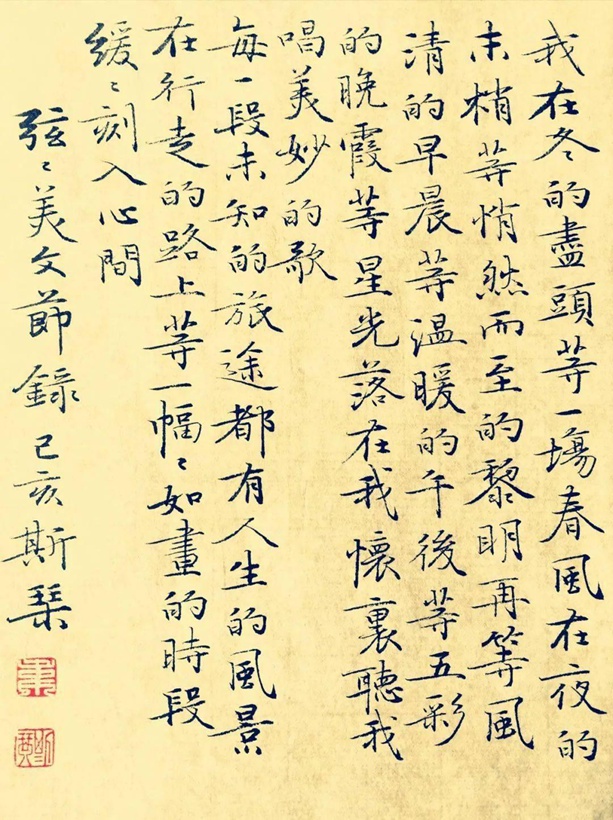 我在冬的盡頭等一場春風在夜的
末梢等悄然而至的黎明再等風
清的早晨等溫暖的午後等五彩
的晚霞等星光落在我懷裏聽我
唱美妙的歌
每一段未知的旅途都有人生的風景
在行走的路上等一幅〻如畫的時段
緩〻刻入心間
弦〻美文節錄己亥斯琹